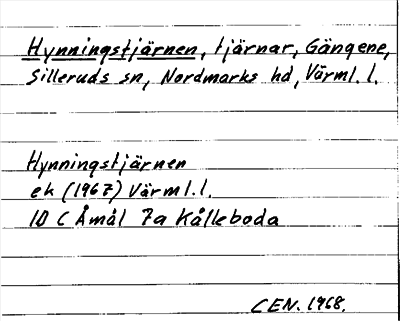 Hynningstjärnen, tjärnar, Gängene,
Silleruds sn, Nordmarks hd, Värml. l.
Hynningstjärnen
ek (1967) Värml. l.
10 C Åmål 7a Kålleboda
CEN. 1968.